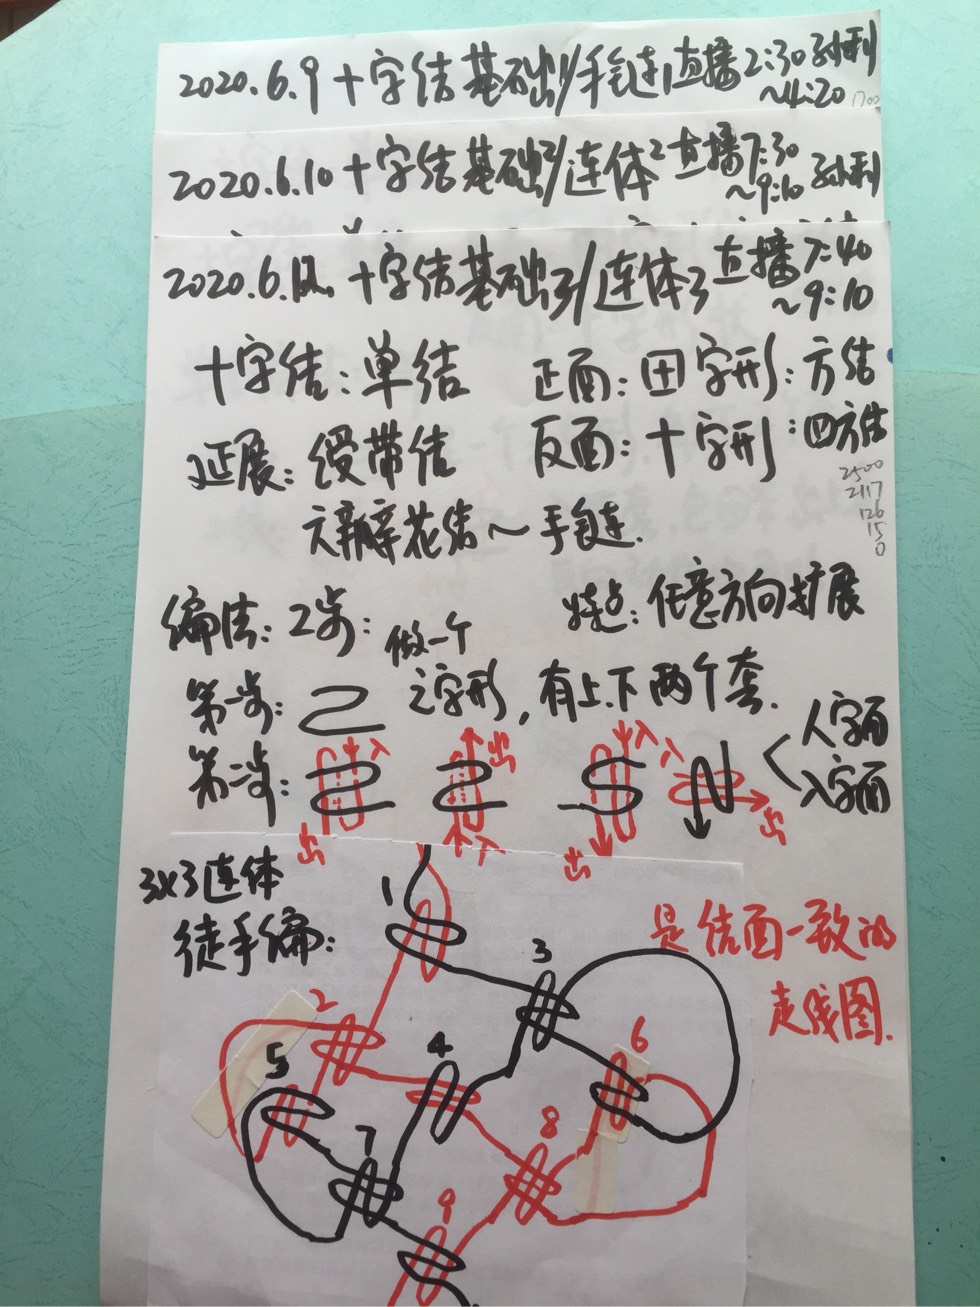 2020.6.9 十字结基础1/手链1直播2:30 孙利
~4:20 1700
2020.6.10 十字结基础2/连体2直播7:30 孙利
~9:10
2020.6.12. 十字结基础3/连体3直播7:40
~9:10
十字结：单结 正面：田字形：方结
延展：绶带结 反面：十字形：四方结
2500
2117
126
15
0
六瓣花结~手链.
编法：2步： 特点：任意方向扩展
第一步： 做一个之字形，有上.下两个套.
第二步： 入 出 入 入 人字面
出 入 出 出 入字面
3x3连体
徒手编：
是结面一致的
走线图.
1
3
2
6
4
5
8
7
9